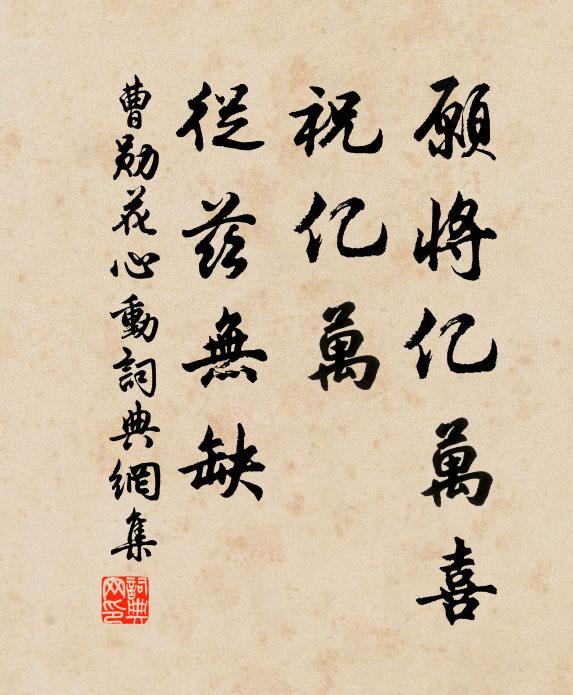 願将亿萬喜
祝亿萬
從茲無缺
曹勛花心動詞典網集
詞典网印